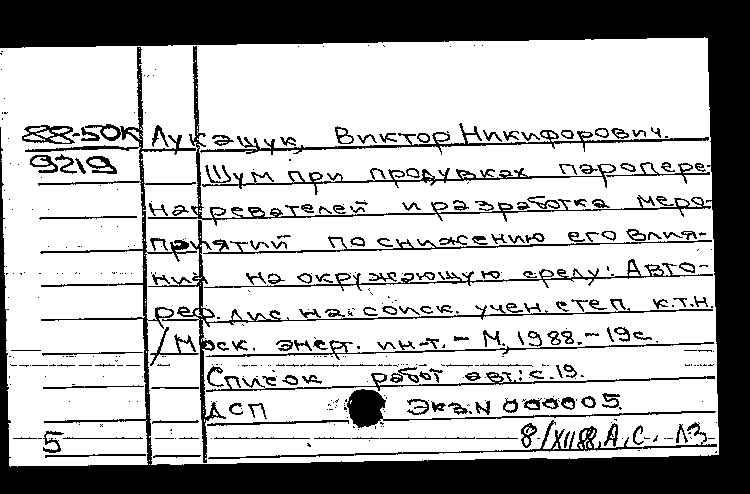 88-50К Лукащук, Виктор Никифорович.
9219 Шум при продувках паропере-
нагревателей и разработка меро-
приятий по снижению его влия-
ния на окружающую среду: Авто-
реф. дис. на соиск. учен. степ. к.т.н.
/Моск. энерг. ин-т. - М, 1988. - 19с.
Список работ авт.: с.19.
ДСП Экз.N 000005
5 8/XII88. А, С. ЛЗ